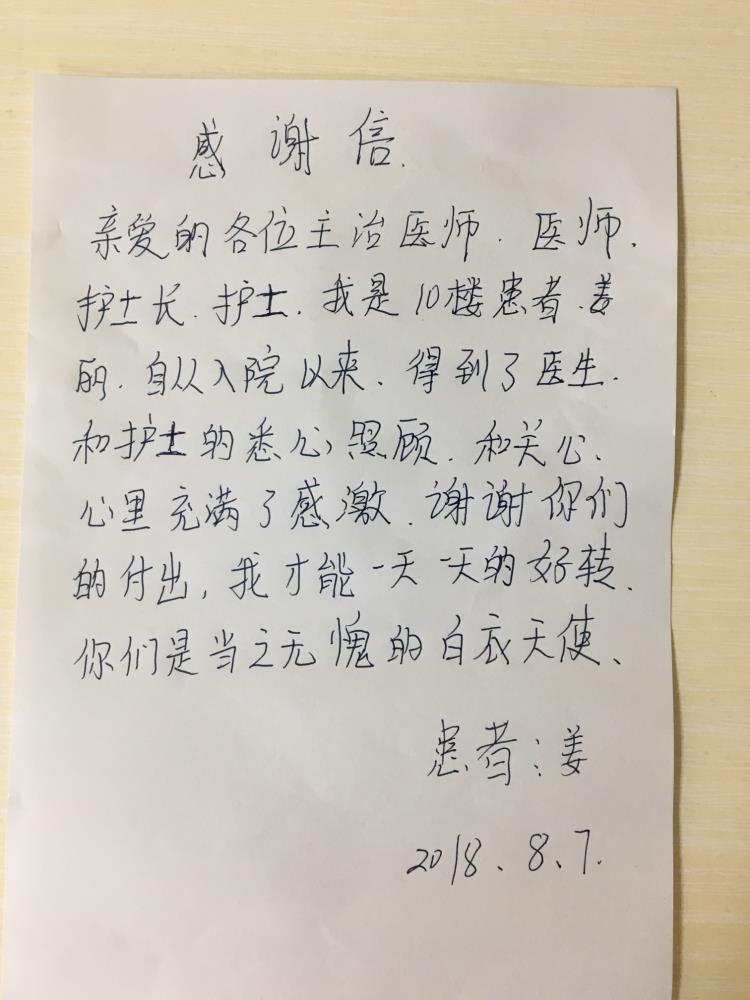 感谢信.
亲爱的各位主治医师.医师.
护士长.护士.我是10楼患者.姜
丽.自从入院以来.得到了医生.
和护士的悉心照顾.和关心、
心里充满了感激.谢谢你们
的付出,我才能一天一天的好转.
你们是当之无愧的白衣天使、
患者:姜
2018、8、7.